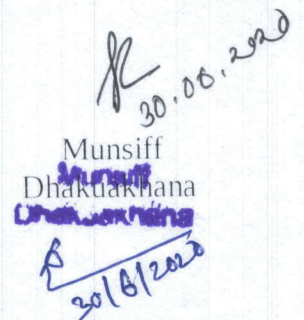 30.06.2020
Munsiff
Munsiff
Dhakuakhana
Dhakuakhana
30/6/2020